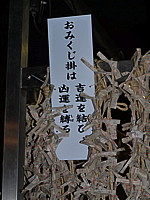 おみくじ掛は
吉運を結び
凶運を縛る